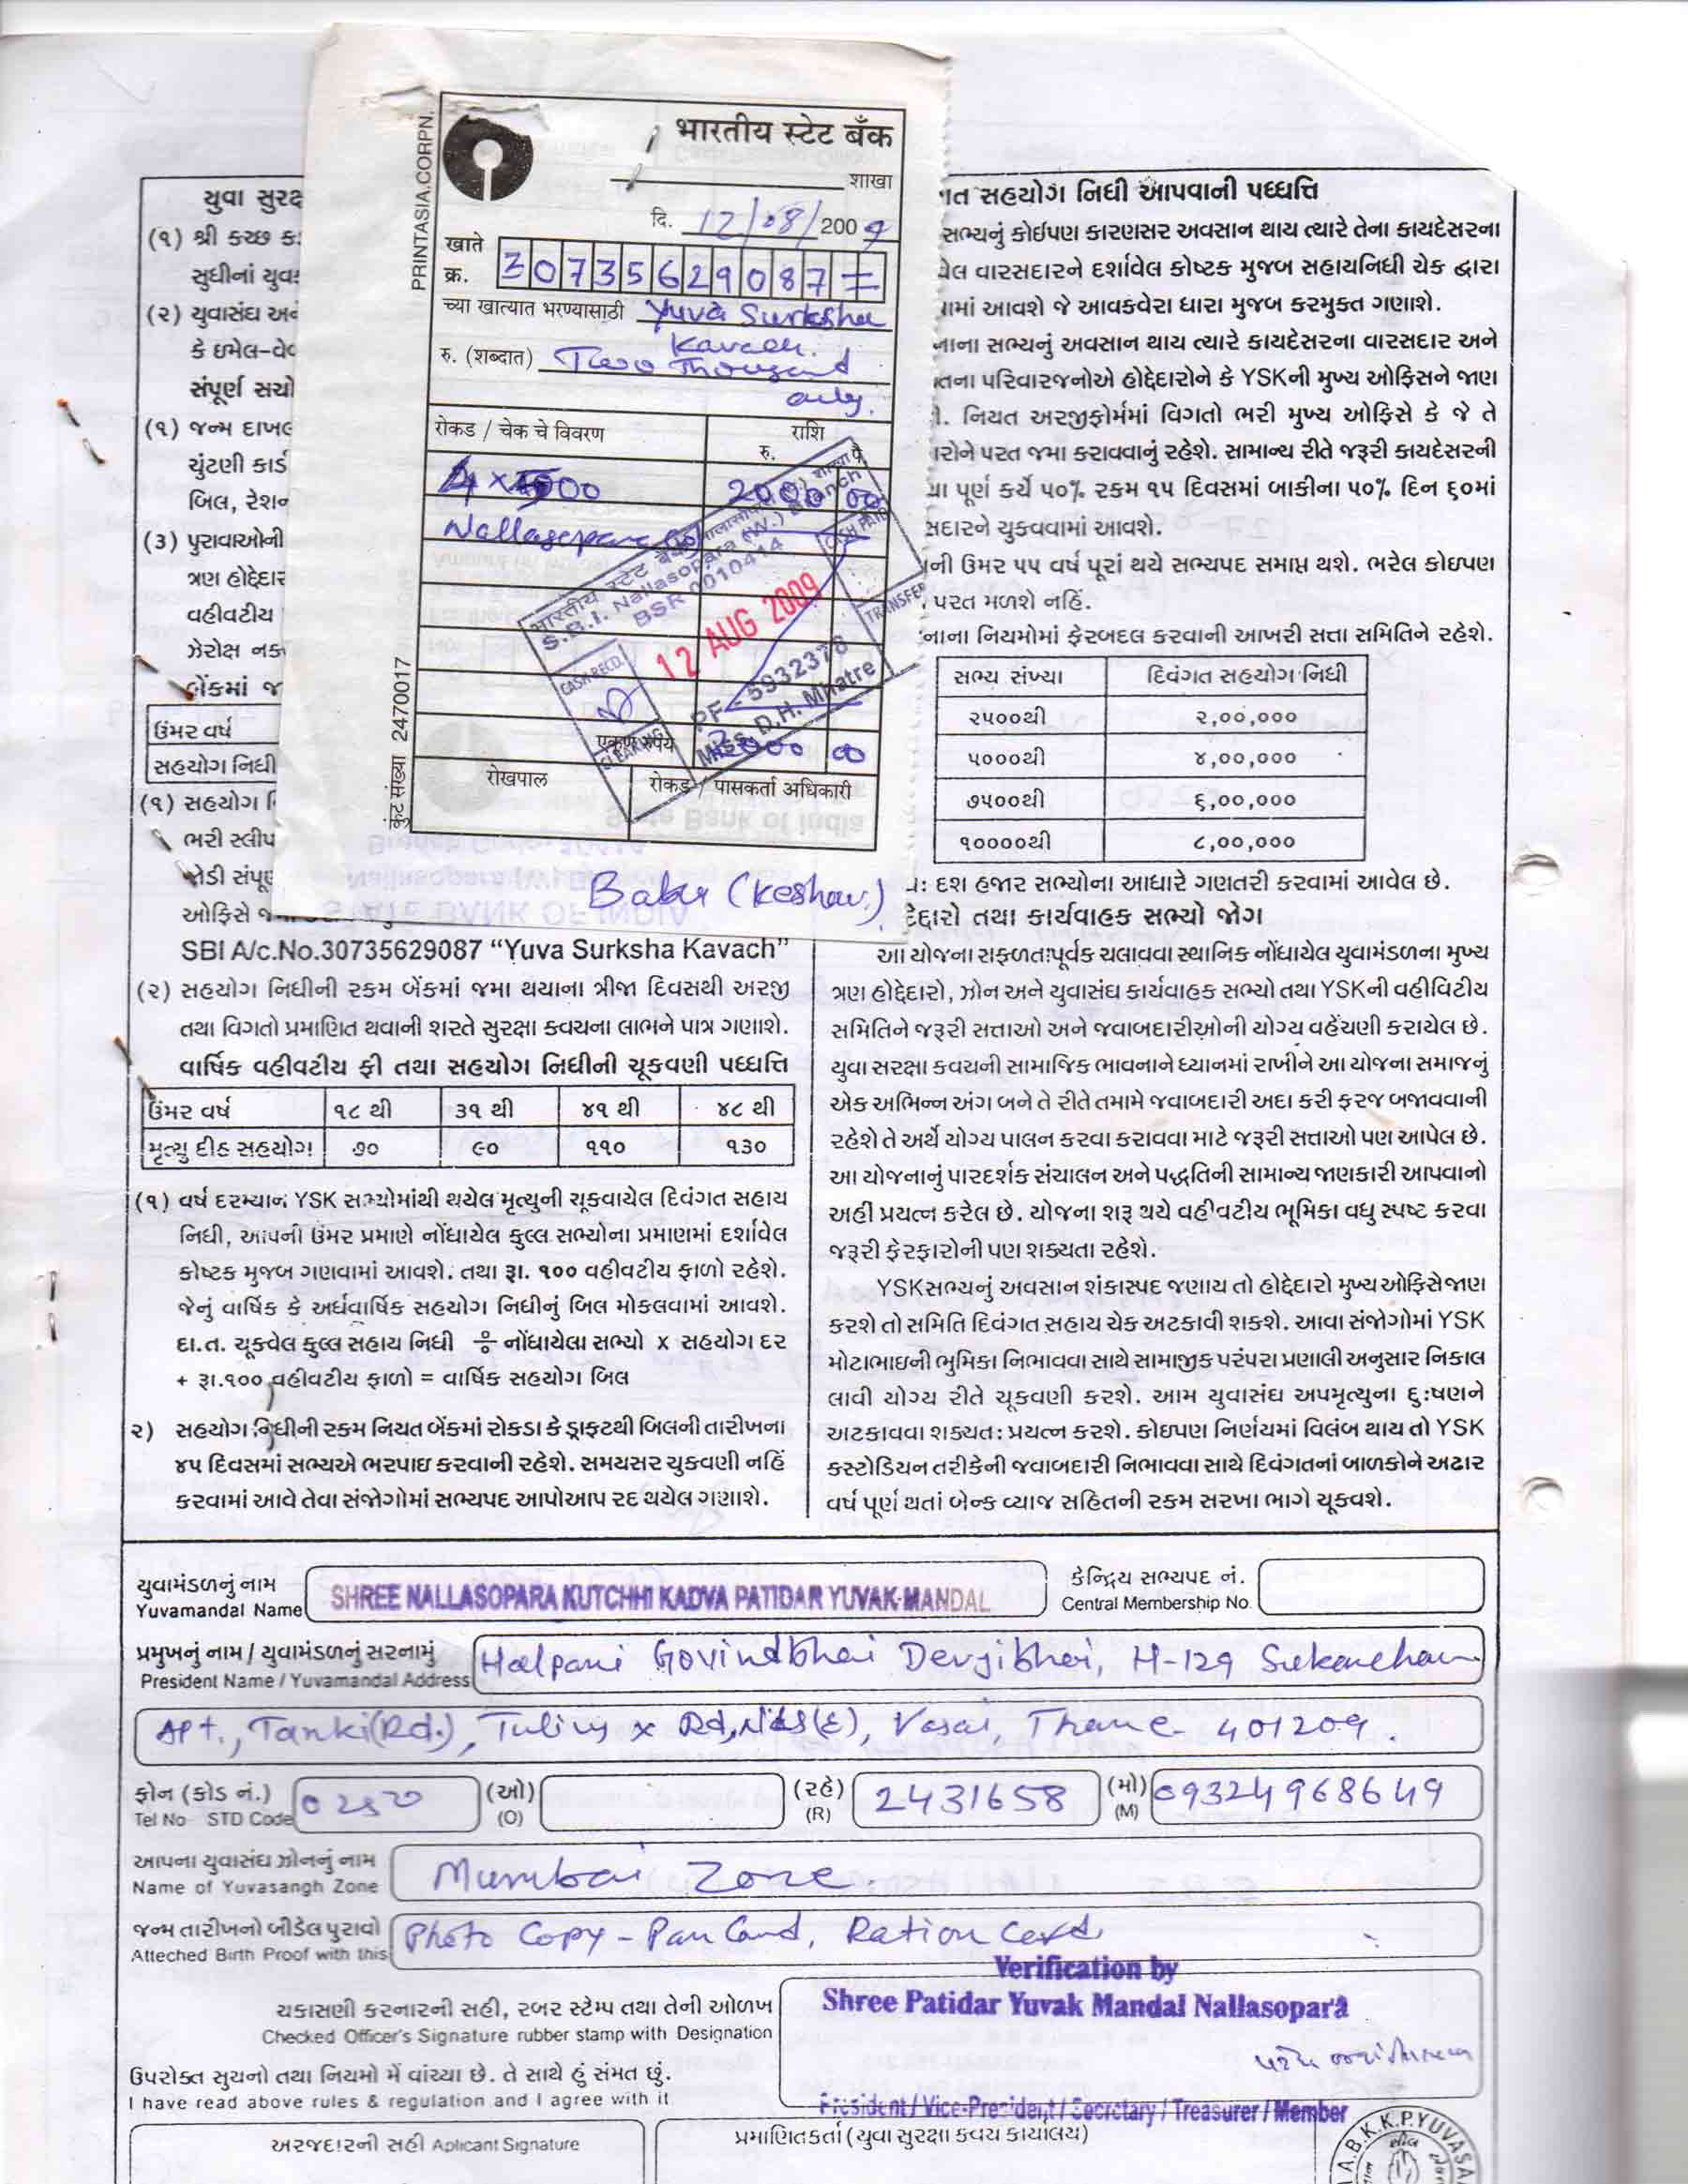 PRINTASIA.CORPN.
भारतीय स्टेट बँक
शाखा
दि. 12/08/2009
खाते
क्र. 30735629087
च्या खात्यात भरण्यासाठी Yuva Surksha
Kavach.
रु. (शब्दात) Two Thousand
only.
रोकड / चेक चे विवरण राशि
रु. पै.
2000 00
Nallasopara
भारतीय स्टेट बैंक
S.B.I. Nallasopara (W.) Branch
BSR 0010414
CASH PAID
TRANSFER
12 AUG 2009
CASH RECD.
CLEARING
PF - 5932378
Miss. D.H. Mhatre
एकूण रुपये 2000 00
रोखपाल रोकड / पासकर्ता अधिकारी
संख्या 2470017
Babu (Keshav.)
યુવા સુરક્ષ
(૧) શ્રી કચ્છ ક
સુધીનાં યુવ
(૨) યુવાસંઘ અને
કે ઇમેલ-વે
સંપૂર્ણ સચો
(૧) જન્મ દાખલ
ચુંટણી કાર્ડ
બિલ, રેશન
(૩) પુરાવાઓની
ત્રણ હોદ્દેદાર
વહીવટીય
ઝેરોક્ષ નક
બેંકમાં જ
ઉંમર વર્ષ
સહયોગ નિધી
(૧) સહયોગ નિ
ભરી સ્લીપ
જોડી સંપૂર્ણ
ઓફિસે જ
SBI A/c.No.30735629087 “Yuva Surksha Kavach”
(૨) સહયોગ નિધીની રકમ બેંકમાં જમા થયાના ત્રીજા દિવસથી અરજી
તથા વિગતો પ્રમાણિત થવાની શરતે સુરક્ષા કવચના લાભને પાત્ર ગણાશે.
વાર્ષિક વહીવટીય ફી તથા સહયોગ નિધીની ચૂકવણી પધ્ધત્તિ
ઉંમર વર્ષ ૧૮ થી ૩૧ થી ૪૧ થી ૪૮ થી
મૃત્યુ દીઠ સહયોગ ૭૦ ૯૦ ૧૧૦ ૧૩૦
(૧) વર્ષ દરમ્યાન YSK સભ્યોમાંથી થયેલ મૃત્યુની ચૂકવાયેલ દિવંગત સહાય
નિધી, આપની ઉંમર પ્રમાણે નોંધાયેલ કુલ્લ સભ્યોના પ્રમાણમાં દર્શાવેલ
કોષ્ટક મુજબ ગણવામાં આવશે. તથા રૂા. ૧૦૦ વહીવટીય ફાળો રહેશે.
જેનું વાર્ષિક કે અર્ધવાર્ષિક સહયોગ નિધીનું બિલ મોકલવામાં આવશે.
દા.ત. ચૂકવેલ કુલ્લ સહાય નિધી ÷ નોંધાયેલા સભ્યો x સહયોગ દર
+ રૂા.૧૦૦ વહીવટીય ફાળો = વાર્ષિક સહયોગ બિલ
૨) સહયોગ નિધીની રકમ નિયત બેંકમાં રોકડા કે ડ્રાફ્ટથી બિલની તારીખના
૪૫ દિવસમાં સભ્યએ ભરપાઇ કરવાની રહેશે. સમયસર ચુકવણી નહિં
કરવામાં આવે તેવા સંજોગોમાં સભ્યપદ આપોઆપ રદ થયેલ ગણાશે.
ગત સહયોગ નિધી આપવાની પધ્ધત્તિ
સભ્યનું કોઈપણ કારણસર અવસાન થાય ત્યારે તેના કાયદેસરના
વેલ વારસદારને દર્શાવેલ કોષ્ટક મુજબ સહાયનિધી ચેક દ્વારા
વામાં આવશે જે આવકવેરા ધારા મુજબ કરમુક્ત ગણાશે.
નાના સભ્યનું અવસાન થાય ત્યારે કાયદેસરના વારસદાર અને
તના પરિવારજનોએ હોદ્દેદારોને કે YSKની મુખ્ય ઓફિસને જાણ
. નિયત અરજીફોર્મમાં વિગતો ભરી મુખ્ય ઓફિસે કે જે તે
રોને પરત જમા કરાવવાનું રહેશે. સામાન્ય રીતે જરૂરી કાયદેસરની
યા પૂર્ણ કર્યે ૫૦% રકમ ૧૫ દિવસમાં બાકીના ૫૦% દિન ૬૦માં
સદારને ચુકવવામાં આવશે.
ની ઉમર ૫૫ વર્ષ પૂરાં થયે સભ્યપદ સમાપ્ત થશે. ભરેલ કોઇપણ
પરત મળશે નહિં.
નાના નિયમોમાં ફેરબદલ કરવાની આખરી સત્તા સમિતિને રહેશે.
સભ્ય સંખ્યા દિવંગત સહયોગ નિધી
૨૫૦૦થી ૨,૦૦,૦૦૦
૫૦૦૦થી ૪,૦૦,૦૦૦
૭૫૦૦થી ૬,૦૦,૦૦૦
૧૦૦૦૦થી ૮,૦૦,૦૦૦
: દશ હજાર સભ્યોના આધારે ગણતરી કરવામાં આવેલ છે.
દેદ્દારો તથા કાર્યવાહક સભ્યો જોગ
આ યોજના સફળતાપૂર્વક ચલાવવા સ્થાનિક નોંધાયેલ યુવામંડળના મુખ્ય
ત્રણ હોદ્દેદારો, ઝોન અને યુવાસંઘ કાર્યવાહક સભ્યો તથા YSKની વહીવિટીય
સમિતિને જરૂરી સત્તાઓ અને જવાબદારીઓની યોગ્ય વહેંચણી કરાયેલ છે.
યુવા સરક્ષા કવચની સામાજિક ભાવનાને ધ્યાનમાં રાખીને આ યોજના સમાજનું
એક અભિન્ન અંગ બને તે રીતે તમામે જવાબદારી અદા કરી ફરજ બજાવવાની
રહેશે તે અર્થે યોગ્ય પાલન કરવા કરાવવા માટે જરૂરી સત્તાઓ પણ આપેલ છે.
આ યોજનાનું પારદર્શક સંચાલન અને પદ્ધતિની સામાન્ય જાણકારી આપવાનો
અહીં પ્રયત્ન કરેલ છે. યોજના શરૂ થયે વહીવટીય ભૂમિકા વધુ સ્પષ્ટ કરવા
જરૂરી ફેરફારોની પણ શક્યતા રહેશે.
YSKસભ્યનું અવસાન શંકાસ્પદ જણાય તો હોદ્દેદારો મુખ્ય ઓફિસે જાણ
કરશે તો સમિતિ દિવંગત સહાય ચેક અટકાવી શકશે. આવા સંજોગોમાં YSK
મોટાભાઇની ભુમિકા નિભાવવા સાથે સામાજીક પરંપરા પ્રણાલી અનુસાર નિકાલ
લાવી યોગ્ય રીતે ચૂકવણી કરશે. આમ યુવાસંઘ અપમૃત્યુના દુઃષણને
અટકાવવા શક્યતઃ પ્રયત્ન કરશે. કોઇપણ નિર્ણયમાં વિલંબ થાય તો YSK
કસ્ટોડિયન તરીકેની જવાબદારી નિભાવવા સાથે દિવંગતનાં બાળકોને અઢાર
વર્ષ પૂર્ણ થતાં બેન્ક વ્યાજ સહિતની રકમ સરખા ભાગે ચૂકવશે.
યુવામંડળનું નામ
Yuvamandal Name SHREE NALLASOPARA KUTCHHI KADVA PATIDAR YUVAK MANDAL
કેન્દ્રિય સભ્યપદ નં.
Central Membership No.
પ્રમુખનું નામ / યુવામંડળનું સરનામું
President Name / Yuvamandal Address Halpani Govindbhai Devjibhai, H-129 Sukanchan
Apt., Tanki(Rd.), Tuling x Rd, (E), Vasai, Thane - 401209.
ફોન (કોડ નં.) 0250 (ઓ) (રહે) 2431658 (મો) 09324968649
Tel No STD Code (O) (R) (M)
આપના યુવાસંઘ ઝોનનું નામ
Name of Yuvasangh Zone Mumbai Zone.
જન્મ તારીખનો બીડેલ પુરાવો
Atteched Birth Proof with this Photo Copy - Pan Card, Ration Card
Verification by
Shree Patidar Yuvak Mandal Nallasopara
ચકાસણી કરનારની સહી, રબર સ્ટેમ્પ તથા તેની ઓળખ
Checked Officer's Signature rubber stamp with Designation
ઉપરોક્ત સુચનો તથા નિયમો મેં વાંચ્યા છે. તે સાથે હું સંમત છું.
I have read above rules & regulation and I agree with it
President / Vice-President / Secretary / Treasurer / Member
અરજદારની સહી Aplicant Signature
પ્રમાણિતકર્તા (યુવા સુરક્ષા કવચ કાર્યાલય)
A.B.K.K.P.YUVASA